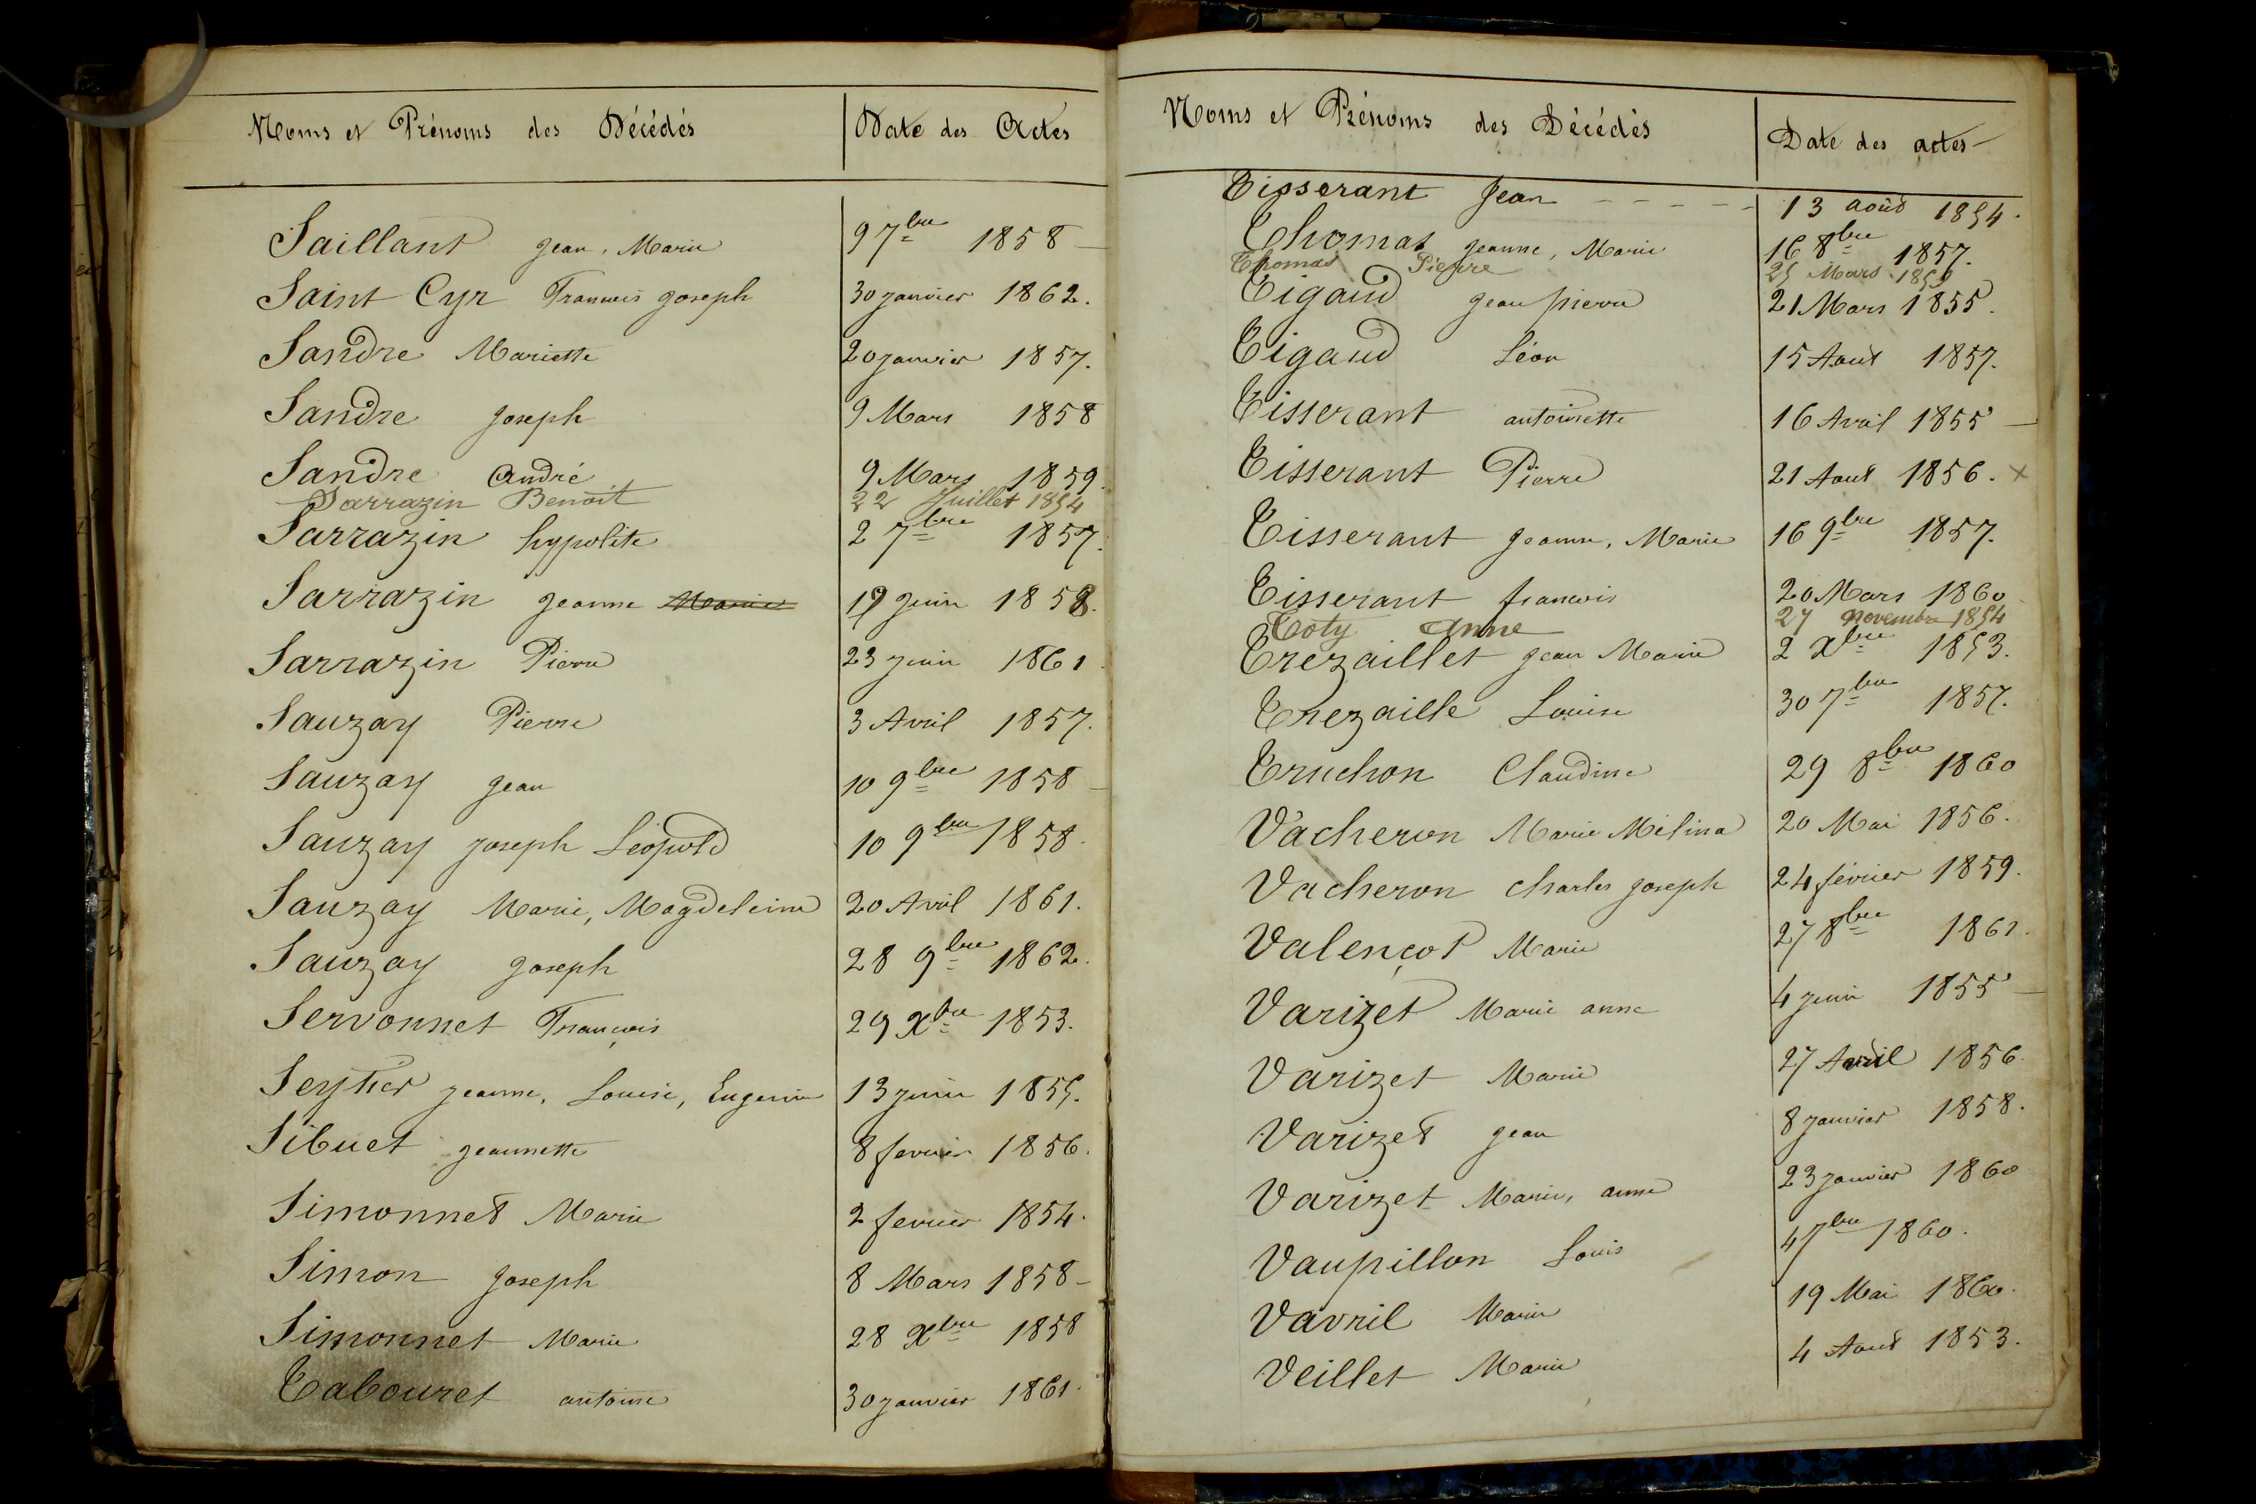 Noms et Prénoms des Décédés Date des Actes
Saillant Jean, Marie 9 7bre 1858
Saint Cyr Francois Joseph 30 Janvier 1862.
Sandre Mariette 20 Janvier 1857.
Sandre Joseph 9 Mars 1858
Sandre André 9 Mars 1859.
Sarrazin Benoit 22 Juillet 1854
Sarrazin hypolite 2 7bre 1857.
Sarrazin Jeanne Marie 19 Juin 1858.
Sarrazin Pierre 23 Juin 1861
Sauzay Pierre 3 Avril 1857.
Sauzay Jean 10 9bre 1858
Sauzay Joseph Léopold 10 9bre 1858.
Sauzay Marie, Magdeleine 20 Avril 1861.
Sauzay Joseph 28 9bre 1862.
Servonnet François 29 Xbre 1853.
Seytier Jeanne, Louise, Eugenie 13 Juin 1855.
Sibuet Jeannette 8 fevrier 1856.
Simonnet Marie 2 fevrier 1854.
Simon Joseph 8 Mars 1858
Simonnet Marie 28 Xbre 1858
Tabouret antoine 30 Janvier 1861.
Noms et Prénoms des Décédés Date des actes
Tisserant Jean - - - - - 13 août 1854.
Thomas Jeanne, Marie 16 8bre 1857.
Thomas Pierre 25 Mars 1859
Tigaud Jean pierre 21 Mars 1855.
Tigaud Léon 15 Aout 1857.
Tisserant antoinette 16 Avril 1855
Tisserant Pierre 21 Aout 1856. x
Tisserant Jeanne, Marie 16 9bre 1857.
Tisserant francois 20 Mars 1860
Toty Anne 27 Novembre 1854
Trezaillet Jean Marie 2 Xbre 1853.
Trezaille Louise 30 7bre 1857.
Truchon Claudine 29 8bre 1860
Vacheron Marie Mélina 20 Mai 1856.
Vacheron Charles Joseph 24 février 1859.
Valençot Marie 27 8bre 1861.
Varizet Marie anne 4 Juin 1855
Varizet Marie 27 Avril 1856
Varizet Jean 8 Janvier 1858.
Varizet Marie, anne 23 Janvier 1860
Vaupillon Louis 4 7bre 1860.
Vavril Marie 19 Mai 1860.
Veillet Marie 4 Aout 1853.